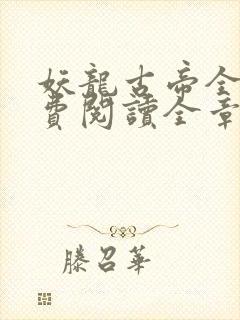 妖龍古帝全
費閱讀全章
滕召華